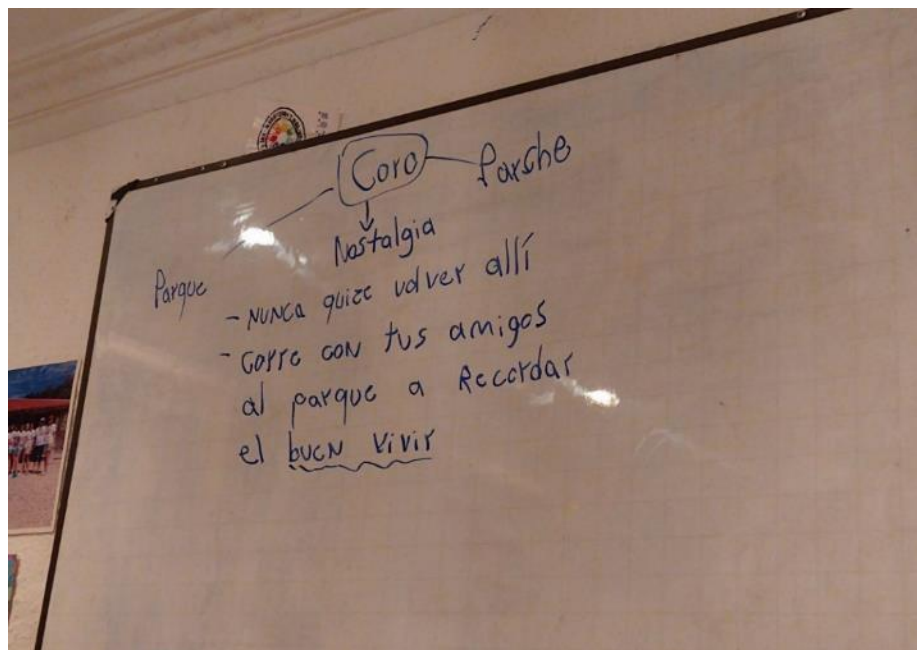 Coro Parche
Nostalgia
Parque
- NUNCA quize volver allí
- corre con tus amigos
al parque a Recordar
el buen vivir